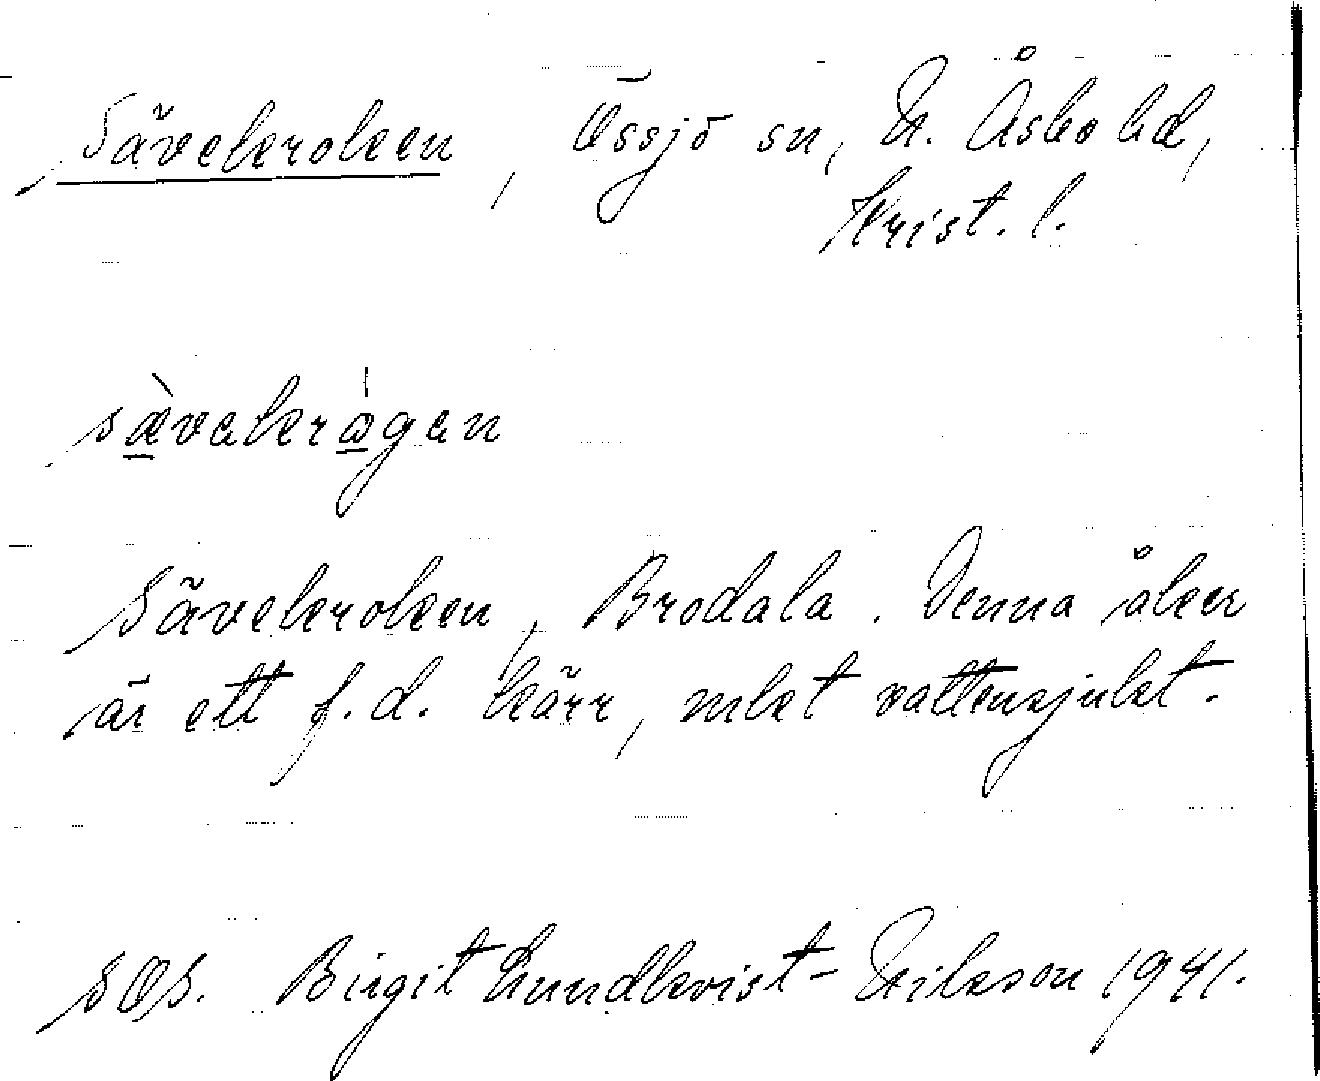 Sävekroken, Össjö sn, N. Åsbo hd,
Krist. l.
sæ̀vəkrǻgən
Sävekroken, Brodala. Denna åker
är ett f.d. kärr, mkt vattensjukt.
SOS. Birgit Lundkvist-Nilsson 1941.